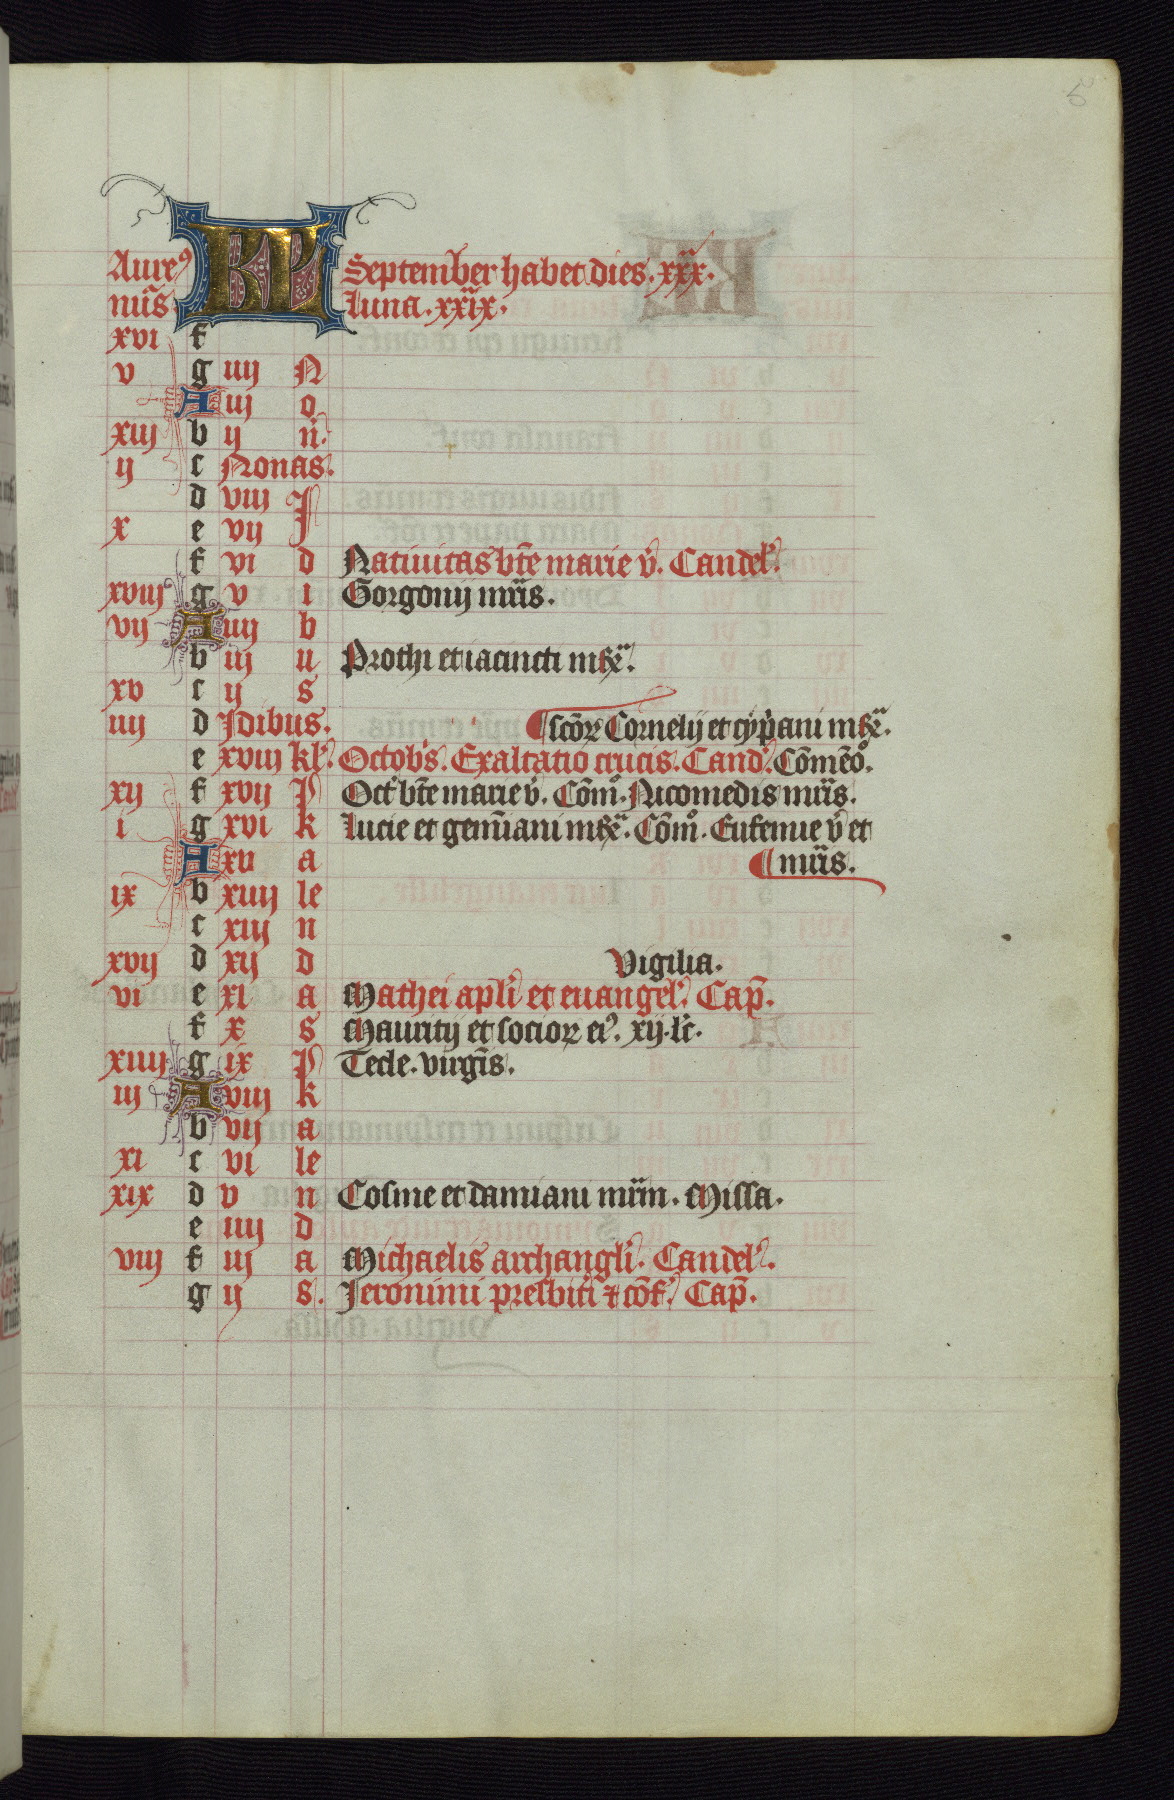 5
Aure⁹ KL September habet dies . xxx .
nu̅s . luna . xxix .
xvi f
v g iiij N
A iij o
xiij b ij n̅ .
ij c Nonas .
d viij J
x e vij
f vi d Natiuitas bt̅e marie v̅ . Candel̅ .
xviij g v i Gorgonij mr̅is .
vij A iiij b
b iij u Prothi et iacincti mr̅ꝝ .
xv c ij s
iiij d Jdibus . sco̅ꝝ Cornelij et cyp̅ani mr̅ꝝ .
e xviij kl̅ . Octob̅s . Exaltatio crucis . Cand̅ . Co̅me̅o̅ .
xij f xvij P Oct̅ bt̅e marie v̅ . Co̅m̅ . Nicomedis mr̅is .
i g xvi k lucie et gem̅iani mr̅ꝝ . Co̅m̅ . Eufemie v̅ et
A xv a mr̅is .
ix b xiiij le
c xiij n
xvij d xij d Vigilia .
vi e xi a Mathei apl̅i et euangel̅ . Cap̅ .
f x s Mauritij et socioꝝ ei⁹ . xij . lc̅ .
xiiij g ix P Tecle . virgi̅s .
iij A viij k
b vij a
xi c vi le
xix d v n Cosme et damiani mr̅m . Missa .
e iiij d
viij f iij a Michaelis archangl̅i . Candel̅ .
g ij s . Jeronimi presbit̅i ⁊ co̅f̅ . Cap̅ .